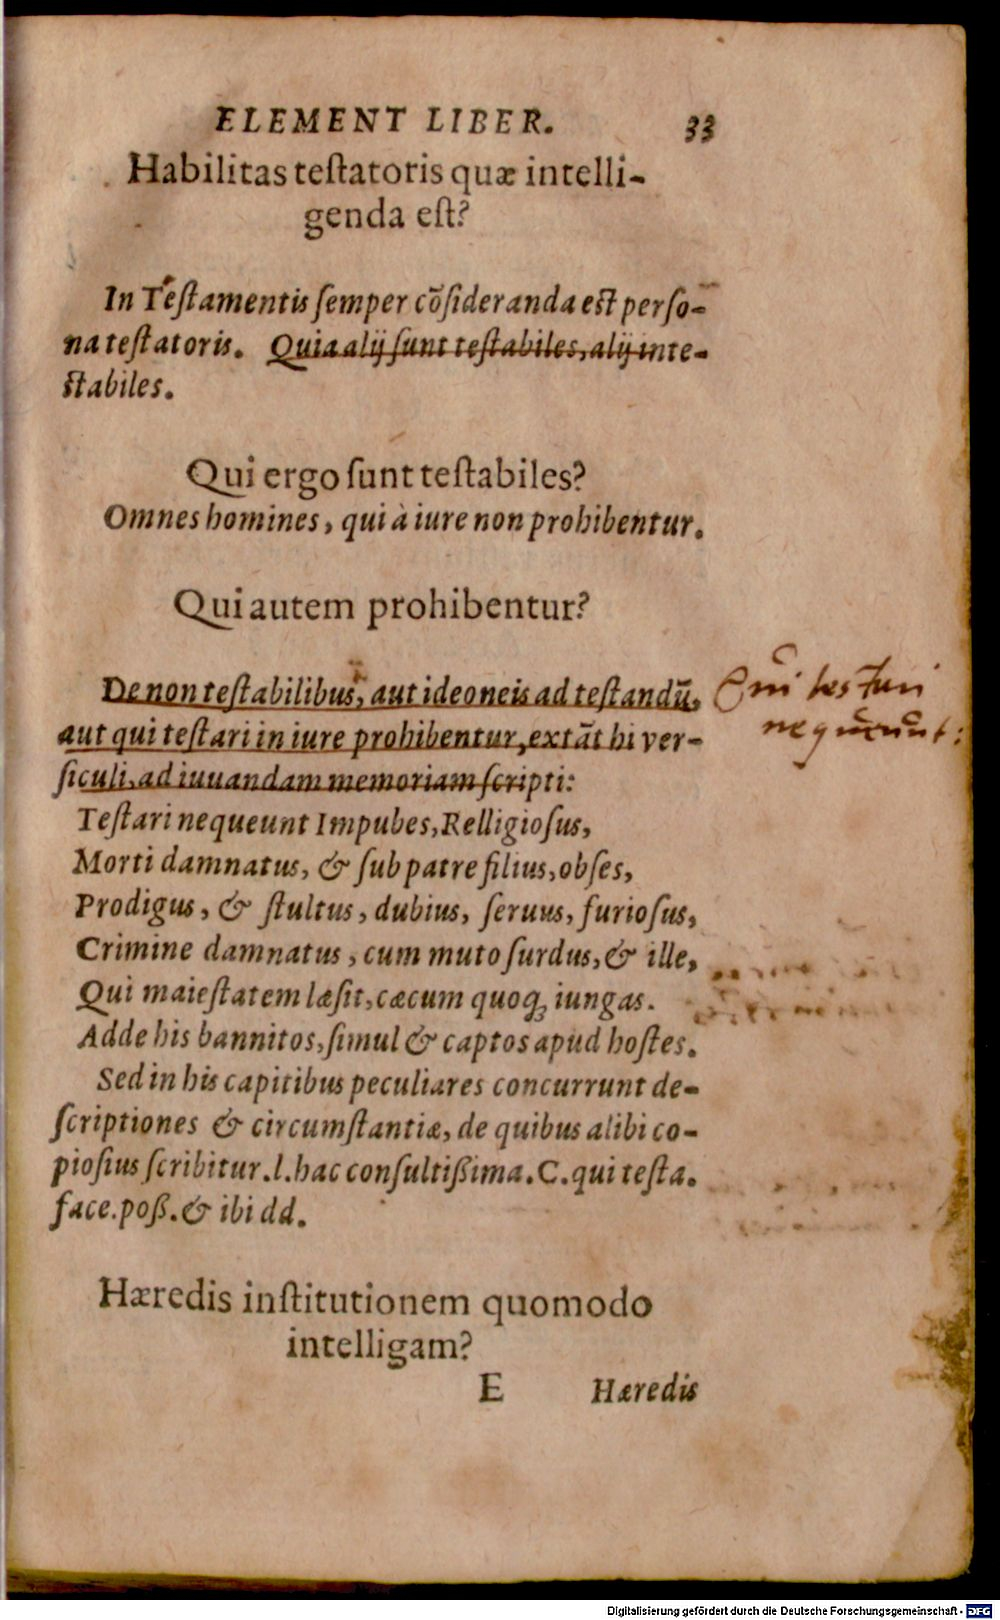 ELEMENT LIBER. 33
Habilitas testatoris quæ intelli-
genda est?
In Testamentis semper cõsideranda est perso-
na testatoris. Quia alij sunt testabiles, alij inte-
stabiles.
Qui ergo sunt testabiles?
Omnes homines, qui à iure non prohibentur.
Qui autem prohibentur?
De non testabilibus, aut ideoneis ad testandũ,
aut qui testari in iure prohibentur, extãt hi ver-
siculi, ad iuuandam memoriam scripti:
Qui testari
nequeunt:
Testari nequeunt Impubes, Relligiosus,
Morti damnatus, & sub patre filius, obses,
Prodigus, & stultus, dubius, seruus, furiosus,
Crimine damnatus, cum muto surdus, & ille,
Qui maiestatem læsit, cæcum quoq; iungas.
Adde his bannitos, simul & captos apud hostes.
Sed in his capitibus peculiares concurrunt de-
scriptiones & circumstantiæ, de quibus alibi co-
piosius scribitur. l. hac consultißima. C. qui testa.
face. poß. & ibi dd.
Hæredis institutionem quomodo
intelligam?
E Hæredis
Digitalisierung gefördert durch die Deutsche Forschungsgemeinschaft - DFG